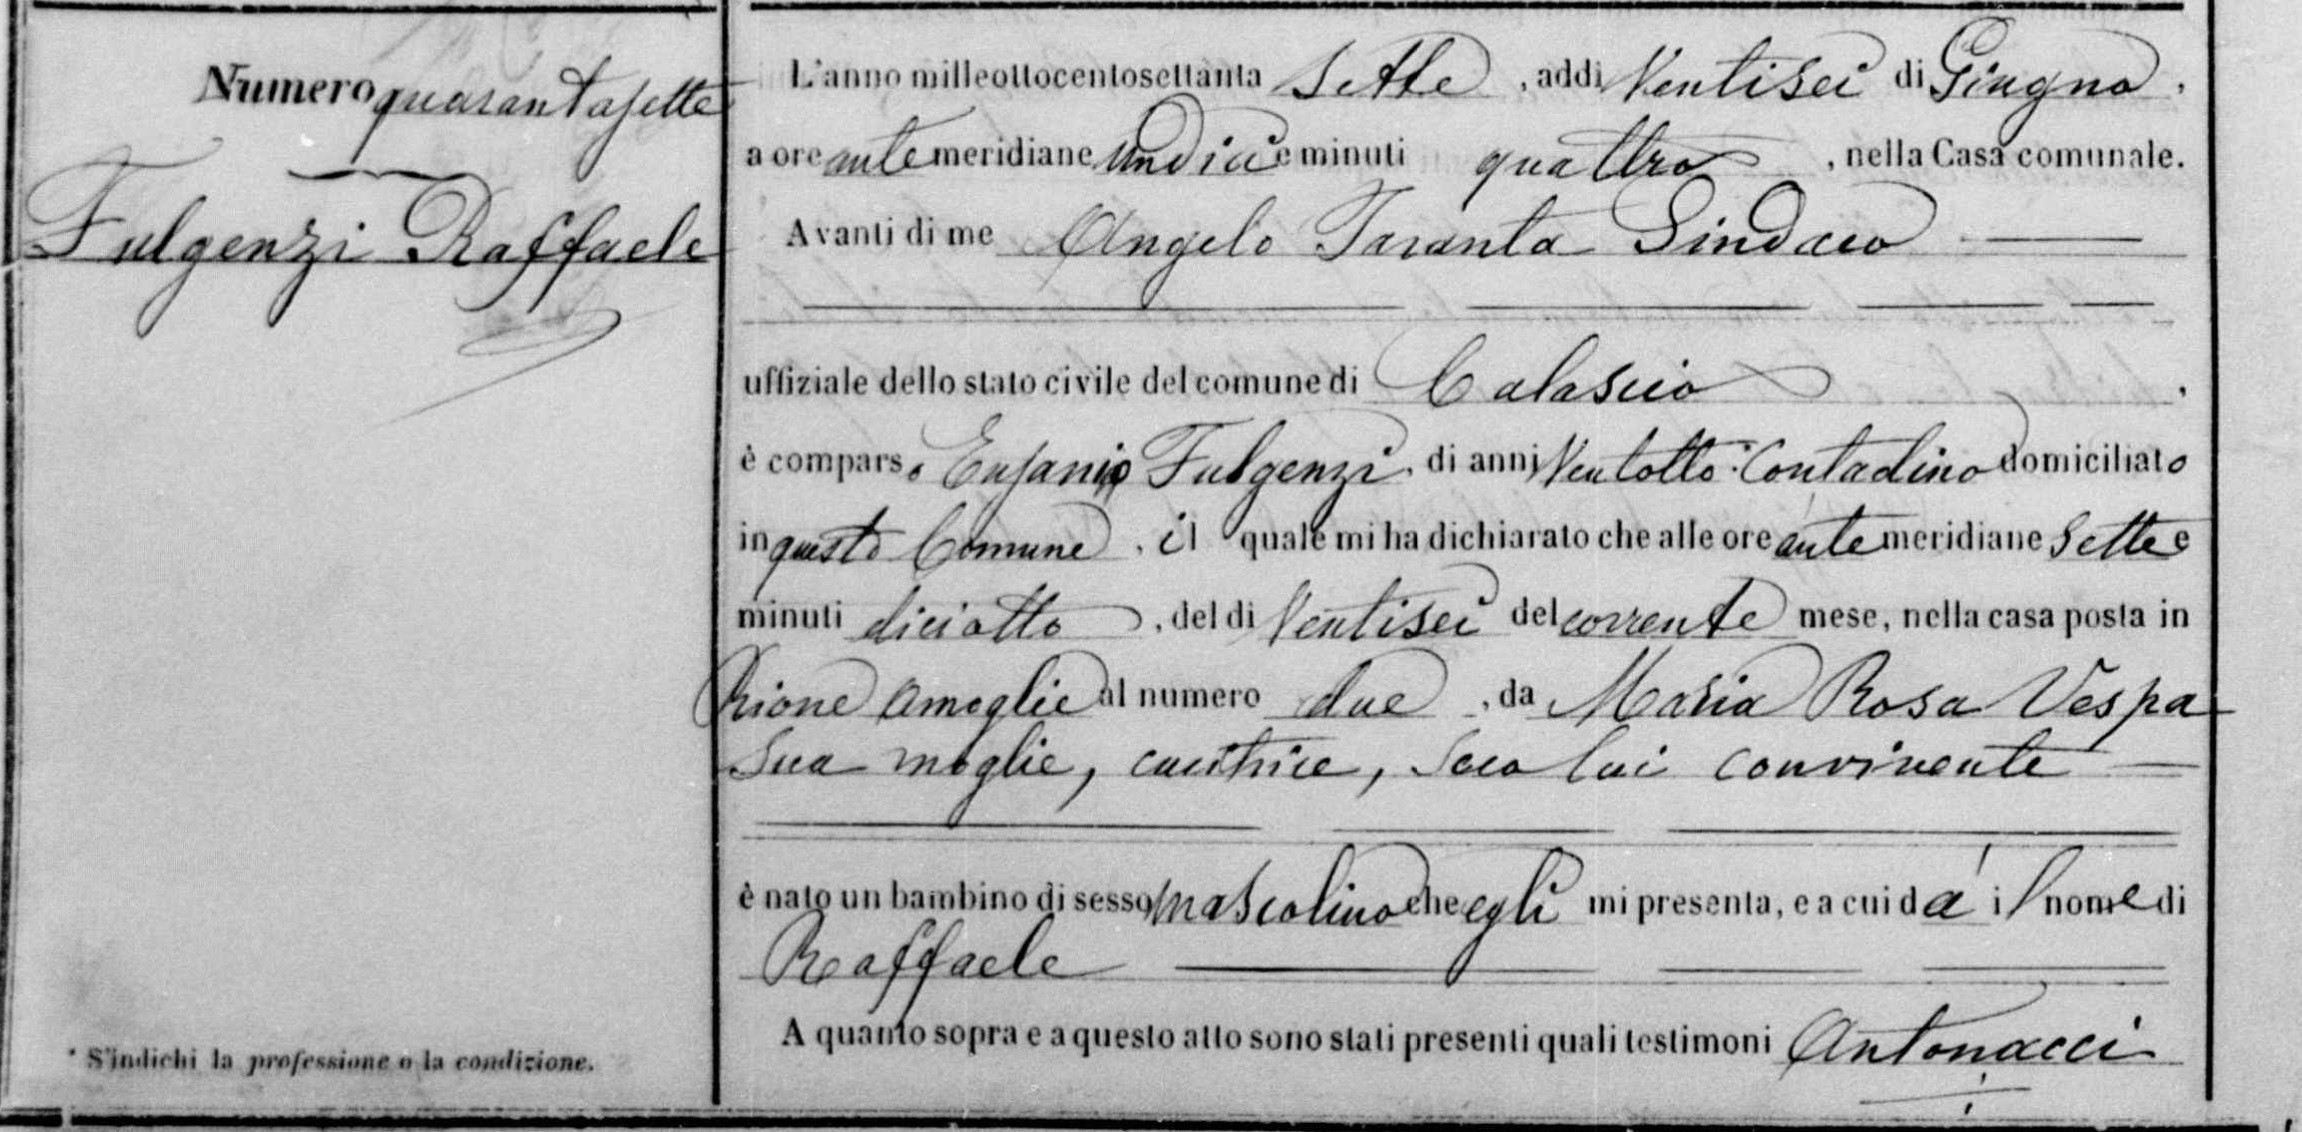 Numero quarantasette
Fulgenzi Raffaele
* S'indichi la professione o la condizione.
L'anno milleottocentosettanta sette, addì Ventisei di Giugno,
a ore ante meridiane undici e minuti quattro, nella Casa comunale.
Avanti di me Angelo Taranta Sindaco
uffiziale dello stato civile del comune di Calascio.
è comparso Eusanio Fulgenzi, di anni Ventotto Contadino domiciliato
in questo Comune, il quale mi ha dichiarato che alle ore ante meridiane Sette e
minuti diciotto, del dì Ventisei del corrente mese, nella casa posta in
Rione al numero due, da Maria Rosa Vespa
sua moglie, cucitrice, seco lui convivente
è nato un bambino di sesso mascolino che egli mi presenta, e a cui dà il nome di
Raffaele
A quanto sopra e a questo atto sono stati presenti quali testimoni Antonacci